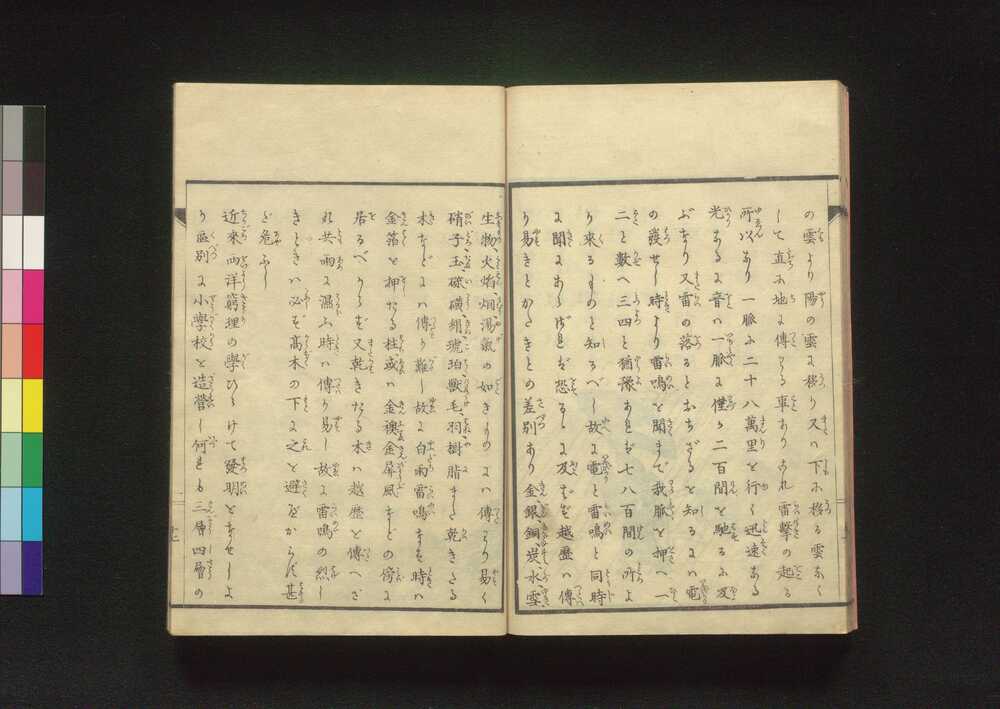 の雲より陽の雲に移り又ハ下に移る雲なく
して直に地に傳ハる事ありこれ雷撃の起る
所以あり一脈に二十八萬里を行く迅速ある
光あるに音ハ一脈に僅か二百間を馳るに及
ぶなり又雷の落るとおちざるを知るにハ電
の發せし時より雷鳴を聞まで我脈を押へ一
二と數へ三四と猶豫あれバ七八百間の所よ
り来るものと知るべし故に電と雷鳴と同時
に聞にあらざれバ恐るゝに及バず越歴ハ傳
り易きとかたきとの差別あり金銀銅炭水雲
生物火焰烟湯氣の如きものにハ傳ハり易く
硝子玉硫磺絹琥珀獸毛羽樹脂また乾きたる
木などにハ傳り難し故に白雨雷鳴する時ハ
金箔を押たる柱或ハ金襖金屏風などの傍に
居るべからず又乾きたる木ハ越歴を傳へざ
れ共雨に濕ふ時ハ傳り易し故に雷鳴の烈し
きときハ必ず高木の下に之を避べからず甚
だ危ふし
近來西洋窮理の學ひらけて發明をなせしよ
り區別に小學校を造營し何れも三層四層の